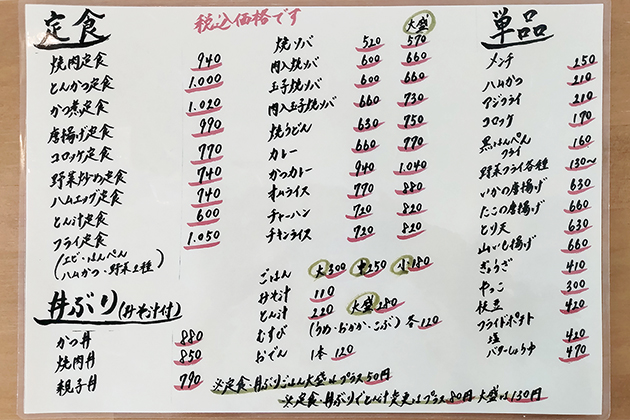 定食
焼肉定食 940
とんかつ定食 1.000
かつ煮定食 1.020
唐揚げ定食 990
コロッケ定食 770
野菜炒め定食 740
ハムエッグ定食 740
とん汁定食 600
フライ定食 1.050
(エビ・はんぺん
ハムかつ・野菜2種)
丼ぶり(みそ汁付)
かつ丼 880
焼肉丼 850
親子丼 790
税込価格です
大盛
焼ソバ 520 570
肉入焼ソバ 600 660
玉子焼ソバ 600 660
肉入玉子焼ソバ 660 730
焼うどん 630 750
カレー 660 770
かつカレー 940 1.040
オムライス 770 880
チャーハン 720 820
チキンライス 720 820
ごはん 大300 中250 小180
みそ汁 110
とん汁 220 大盛280
むすび (うめ・おかか・こぶ) 各120
おでん 1本 120
単品
メンチ 250
ハムかつ 210
アジフライ 210
コロッケ 170
黒はんぺん
フライ 160
野菜フライ各種 130〜
いかの唐揚げ 630
たこの唐揚げ 660
とり天 630
山いも揚げ 660
ぎょうざ 410
やっこ 300
枝豆 420
フライドポテト
塩 420
バターしょうゆ 470
※定食・丼ぶりごはん大盛はプラス50円
※定食・丼ぶりでとん汁変更はプラス80円 大盛は130円